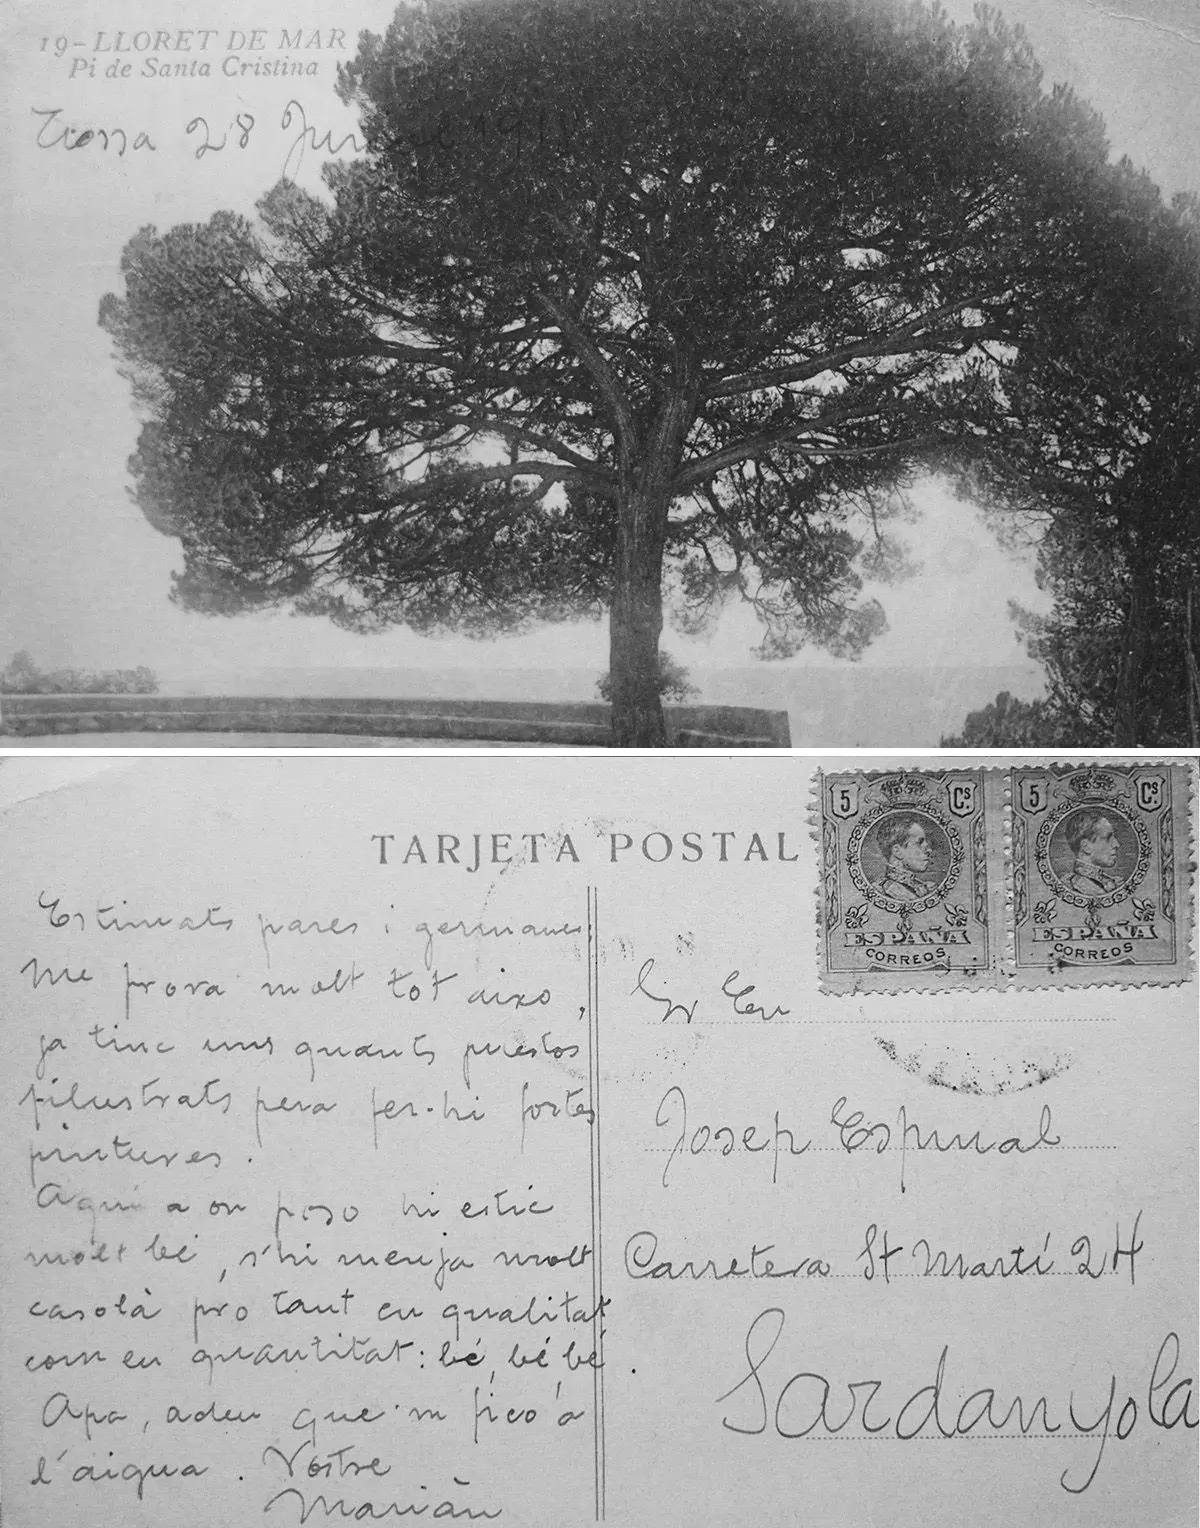 19-LLORET DE MAR
Pi de Santa Cristina
Tossa 28
TARJETA POSTAL
5 Cs.
ESPAÑA
CORREOS
5 Cs.
ESPAÑA
CORREOS
Estimats pares i germanes:
Me prova molt tot aixo,
ja tinc uns quants puestos
filustrats pera fer-hi fortes
pintures.
Aqui a on poso hi estic
molt bé, s'hi menja molt
casolà pro tant en qualitat
com en quantitat: bé, bé bé.
Apa, adeu que'm fico a
l'aigua. Vostre
Mariàn
Sr En
Josep Espinal
Carretera St Martí 24
Sardanyola